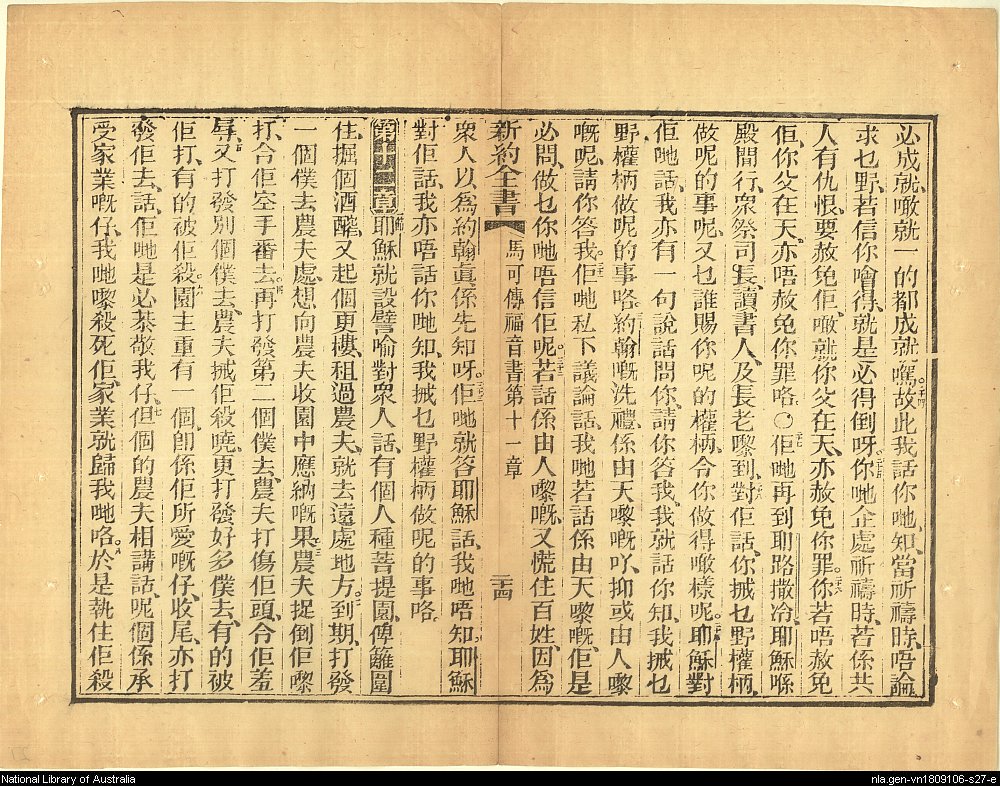 必成就、噉就一的都成就嚟、故此我話你哋知、當祈禱時、唔論
求乜野、若信你噲得、就是必得倒呀、你哋企處祈禱時、若係共
人有仇恨、要赦免佢、噉就你父在天、亦赦免你罪、你若唔赦免
佢、你父在天、亦唔赦免你罪咯○佢哋再到耶路撒冷、耶穌喺
殿閒行、衆祭司長、讀書人、及長老嚟到、對佢話、你搣乜野權柄、
做呢的事呢、又乜誰賜你呢的權柄、令你做得噉樣呢、耶穌對
佢哋話、我亦有一句說話問你、請你答我、我就話你知、我搣乜
野權柄做呢的事咯、約翰嘅洗禮、係由天嚟嘅吖、抑或由人嚟
嘅呢、請你答我、佢哋私下議論話、我哋若話係由天嚟嘅、佢是
必問、做乜你哋唔信佢呢、若話係由人嚟嘅、又慌住百姓、因爲
新約全書 馬可傳福音書第十一章 二十四
衆人以爲約翰眞係先知呀、佢哋就答耶穌話、我哋唔知、耶穌
對佢話、我亦唔話你哋知、我搣乜野權柄做呢的事咯。
第十二章 耶穌就設譬喻對衆人話、有個人種菩提園、傅籬圍
住、掘個酒醡、又起個更樓、租過農夫、就去遠處地方、到期、打發
一個僕去農夫處、想向農夫收園中應納嘅果、農夫捉倒佢嚟
打、令佢空手番去、再打發第二個僕去、農夫打傷佢頭、令佢羞
辱、又打發別個僕去、農夫搣佢殺嘵、更打發好多僕去、有的被
佢打、有的被佢殺、園主重有一個、卽係佢所愛嘅仔、收尾、亦打
發佢去、話、佢哋是必恭敬我仔、但個的農夫相講話、呢個係承
受家業嘅仔、我哋嚟殺死佢、家業就歸我哋咯、於是執住佢殺